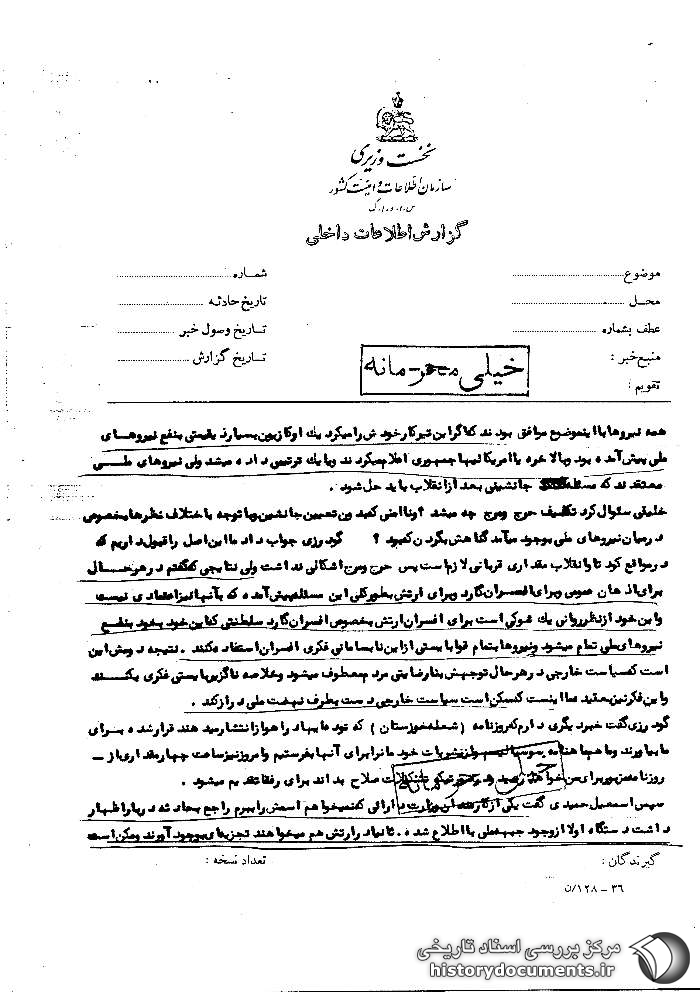 نخست وزیری
سازمان اطلاعات و امنیت کشور
س.ا.و.ا.ک
گزارش اطلاعات داخلی
موضوع
شماره
محل
تاریخ حادثه
عطف بشماره
تاریخ وصول خبر
منبع خبر :
تاریخ گزارش
تقویم :
خیلی محرمانه
همه نیروها با این موضوع موافق بودند که اگر این تیر کار خودش را میکرد یک اوکازیون بسیار ذیقیمتی بنفع نیروهای
ملی پیش آمده بود وبالاخره یا امریکائیها جمهوری اعلام میکردند ویا یک ترتیبی داده میشد ولی نیروهای ملی
معتقدند که مسئله جانشینی بعد از انقلاب باید حل شود .
خلیقی سئوال کرد تکلیف هرج ومرج چه میشد ؟ وتا امنی کشور بدون تعیین جانشین وبا توجه باختلاف نظرها بخصوص
درمیان نیروهای ملی بوجود میآمد گناهش بگردن که بود ؟ گودرزی جواب داد ما این اصل را قبول داریم که
در مواقع کودتا وانقلاب مقداری قربانی لازم است پس هرج ومرج اشکالی نداشت ولی نتایجی که گفتم در هر حال
برای اذهان عمومی وبرای افسران گارد وبرای ارتش بطور کلی این مسئله پیش آمده که بآنها نیز اعتمادی نیست
واین خود از نظر روانی یک شوکی است برای افسران ارتش بخصوص افسران گارد سلطنتی که این خود بخود بنفع
نیروهای ملی تمام میشود ونیروها بتمام قوا بایستی از این نابسامانی فکری افسران استفاده کنند . نتیجه دومش این
است که سیاست خارجی در هر حال توجهش بنارضایتی مردم معطوف میشود وخلاصه ناگزیر بایستی فکری بکنند
واین فکر نیز بعقیده ما اینست که ممکن است سیاست خارجی دست بطرف نهضت ملی دراز کند .
گودرزی گفت خبر دیگری دارم که روزنامه ( شعله خوزستان ) که توده‌ایها در اهواز انتشار میدهند قرار شده برای
ما بیاورند وما هم ماهنامه سوسیالیسم واز نشریات خودمان را برای آنها بفرستیم وامروز نیز ساعت چهار مقداری از -
روزنامه مزبور برای من خواهد رسید ودر صورتیکه تشکیلات صلاح بداند برای رفقا تقدیم میشود .
سپس اسمعیل حمیدی گفت یکی از کارمندان وزارت دارائی که نمیخواهم اسمش را ببرم راجع بحادثه دربار اظهار
داشت دستگاه اولا از وجود جبهه ملی با اطلاع شده . ثانیا در ارتش هم میخواهند تجزیه‌ای بوجود آورند وممکن است
گیرندگان :
تعداد نسخه :
۳۶ - ۱۲۸/ن
مرکز بررسی اسناد تاریخی
historydocuments.ir